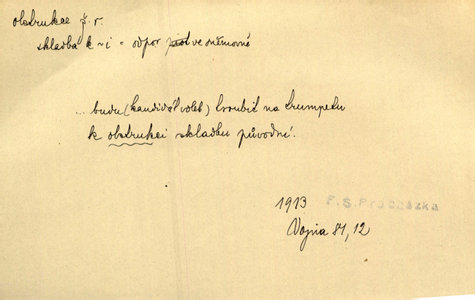 obstrukce ž. r.
skladba k ~i = odpor ve sněmovně
... budu (kandidát voleb) troubit na trumpetu
k obstrukci skladbu původní.
1913 F. S. Procházka
Vojna 81, 12